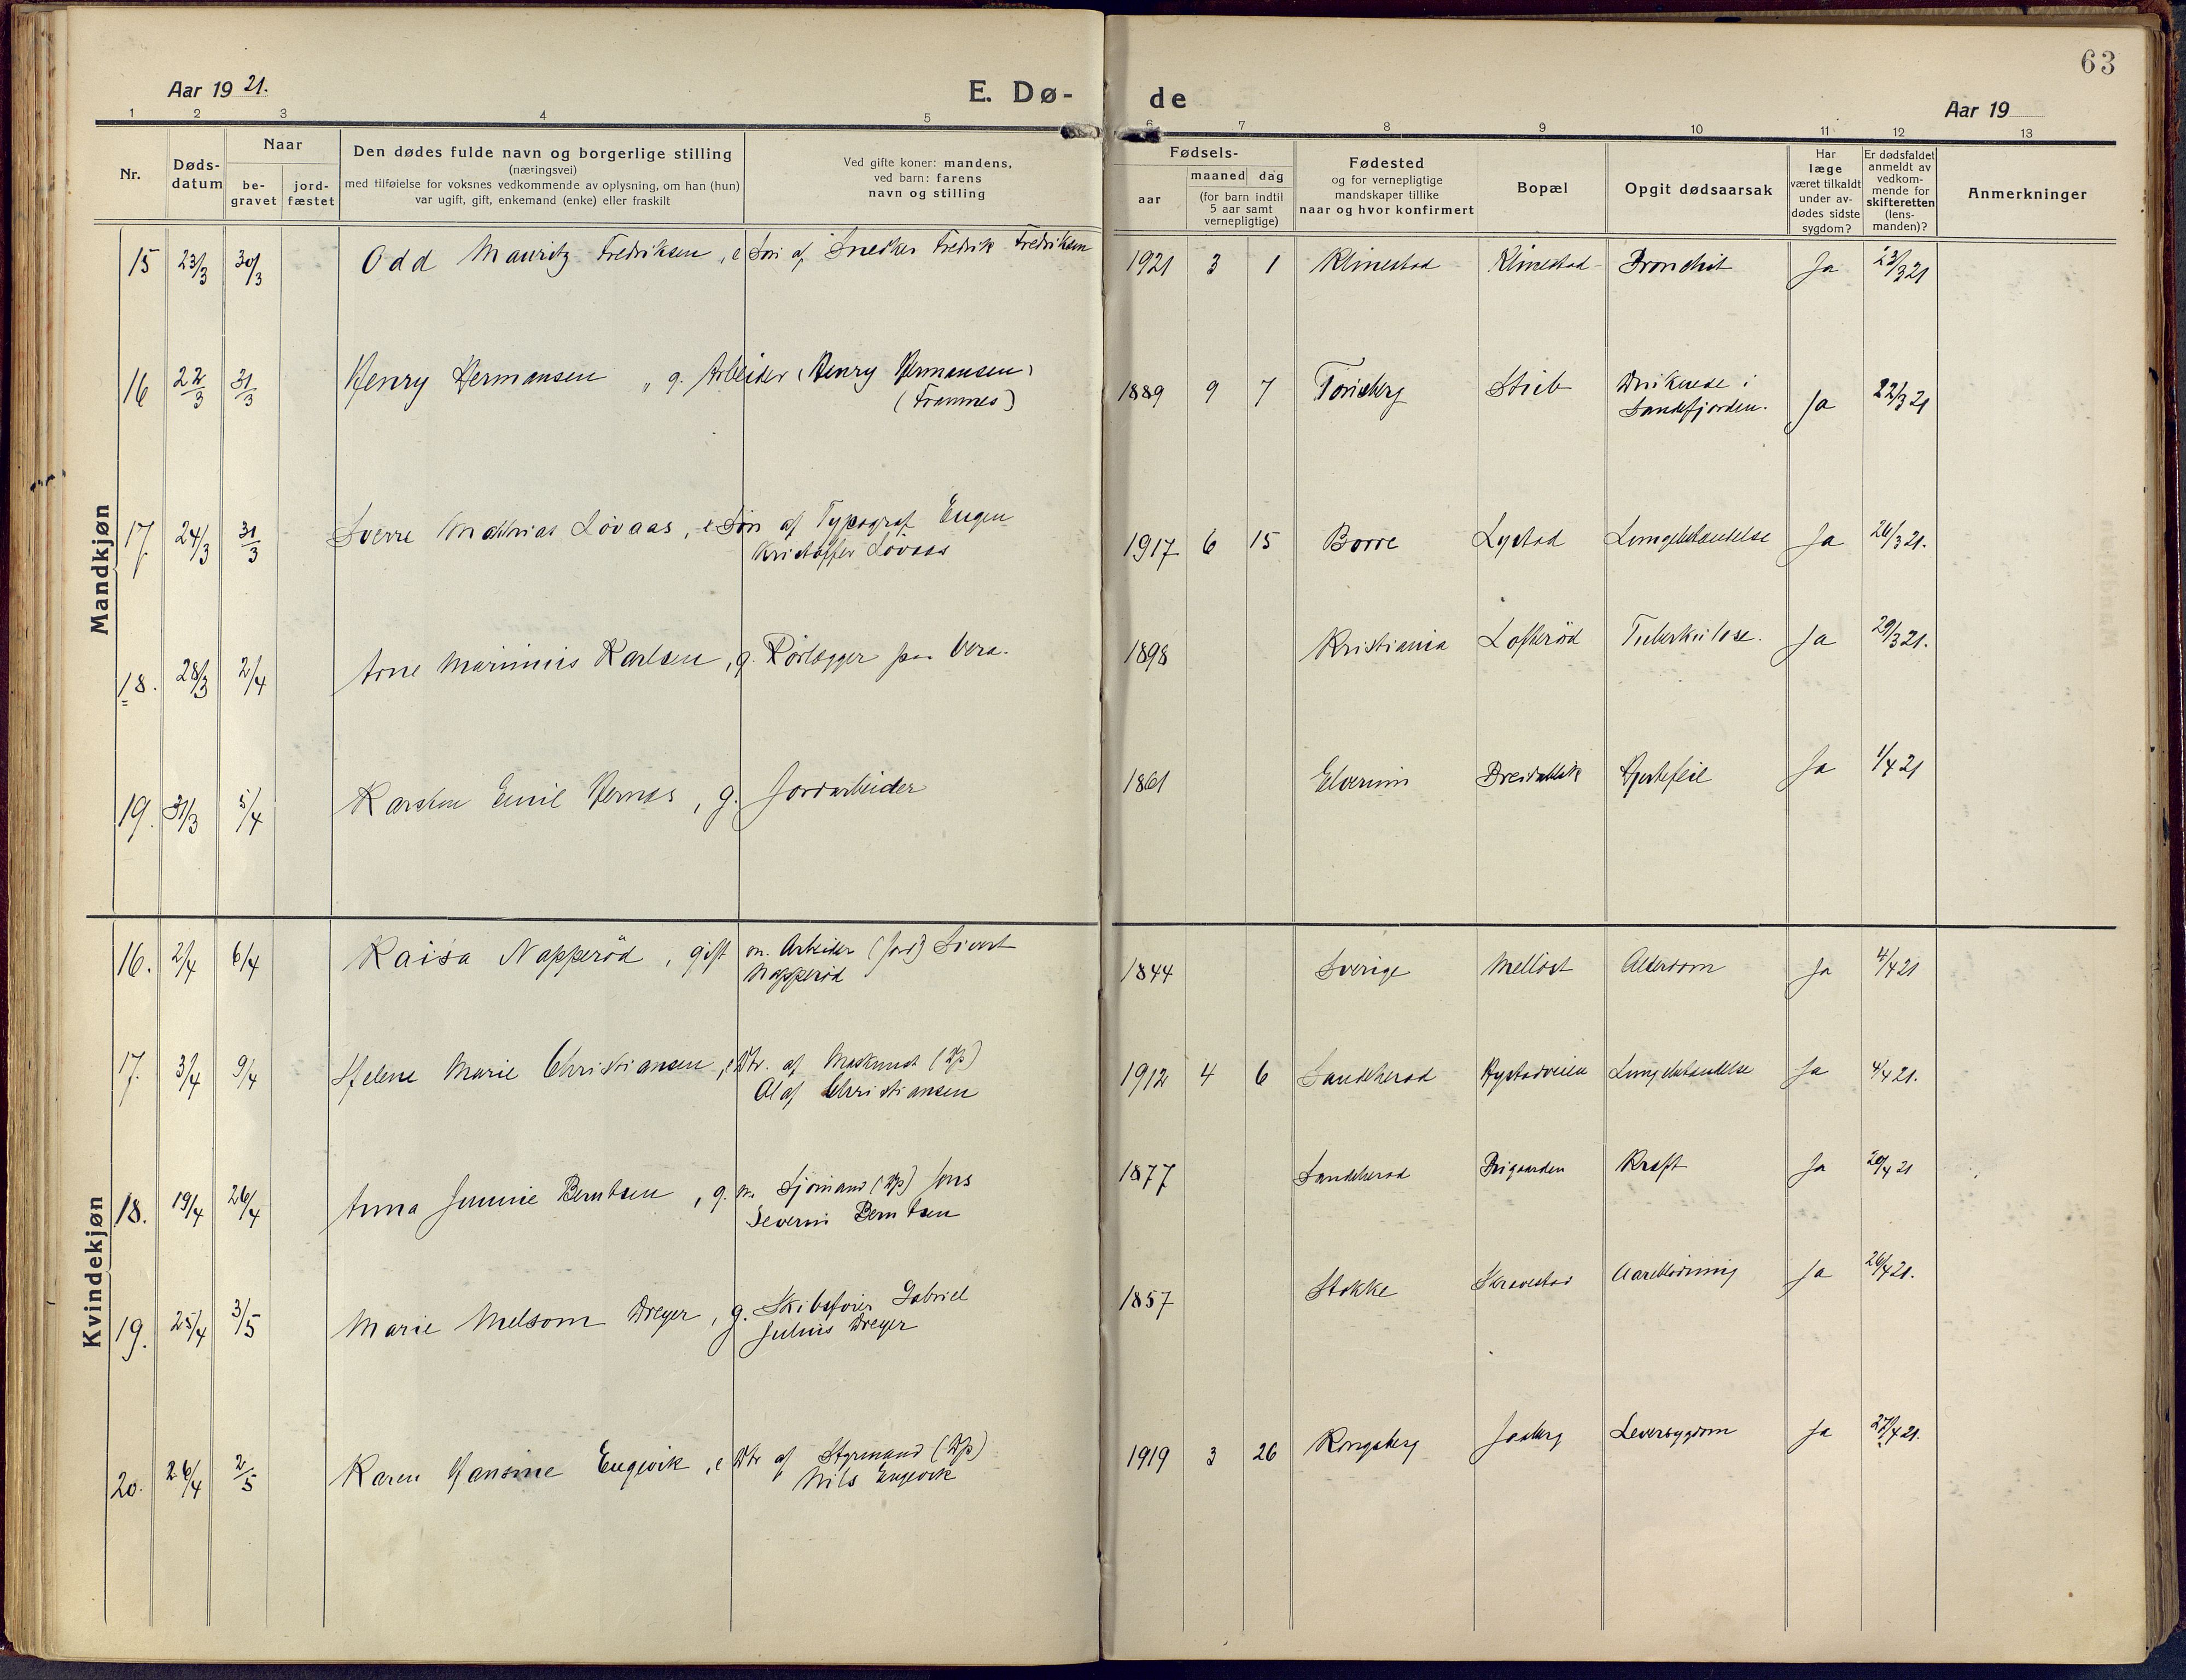 63
Aar 19 21.
E. Dø-
de
Aar 19
1 2 3 4 5 6 7 8 9 10 11 12 13
Nr.
Døds-
datum
Naar
be-
gravet
jord-
fæstet
Den dødes fulde navn og borgerlige stilling
(næringsvei)
med tilføielse for voksnes vedkommende av oplysning, om han (hun)
var ugift, gift, enkemand (enke) eller fraskilt
Ved gifte koner: mandens,
ved barn: farens
navn og stilling
Fødsels-
aar
maaned dag
(for barn indtil
5 aar samt
vernepligtige)
Fødested
og for vernepligtige
mandskaper tillike
naar og hvor konfirmert
Bopæl
Opgit dødsaarsak
Har
læge
været tilkaldt
under av-
dødes sidste
sygdom?
Er dødsfaldet
anmeldt av
vedkom-
mende for
skifteretten
(lens-
manden)?
Anmerkninger
Mandkjøn
15 23/3 30/3 Odd Mauritz Fredriksen, e Søn af Snedker Fredrik Fredriksen 1921 3 1 Klinestad Klinestad Bronchit Ja 23/3 21
16 22/3 31/3 Henry Hermansen „ g. Arbeider (Henry Hermansen)
(Framnes) 1889 9 7 Tønsberg Druknede i
Sandefjorden. Ja 22/3 21
17. 24/3 31/3 Sverre Mathias Løvaas, e Søn af Typograf Eugen
Kristoffer Løvaas 1917 6 15 Borre Lystad Lungebetændelse Ja 26/3 21.
18. 28/3 2/4 Arne Marinius Karlsen, g. Rørlægger paa Vera. 1898 Kristiania Lofterød Tuberkulose. Ja 29/3 21.
19. 31/3 5/4 Karsten Emil Hernes, g. Jordarbeider 1861 Elverum Breidablik Hjertefeil Ja 1/4 21
Kvindekjøn
16. 2/4 6/4 Kaisa Napperød, gift m. Arbeider (Jord) Sivert
Napperød 1844 Sverige Melløst Alderdom Ja 4/4 21
17. 3/4 9/4 Helene Marie Christiansen, e Dtr. af Maskinist (Dp)
Olaf Christiansen 1912 4 6 Sandeherad Hystadveien Lungebetændelse Ja 4/4 21.
18. 19/4 26/4 Anna Jennie Berntsen, g. m. Sjømand (Dp) Jens
Severin Berntsen 1877 Sandeherad Kræft Ja 20/4 21
19. 25/4 3/5 Marie Melsom Dreyer, g. Skibsfører Gabriel
Julius Dreyer 1857 Stokke Skravestad Aareblødning Ja 26/4 21.
20. 26/4 2/5 Karen Hansine Engevik, e Dtr af Styrmand (Dp)
Nils Engevik 1919 3 26 Kongsberg Jaaberg Leversygdom Ja 27/4 21.